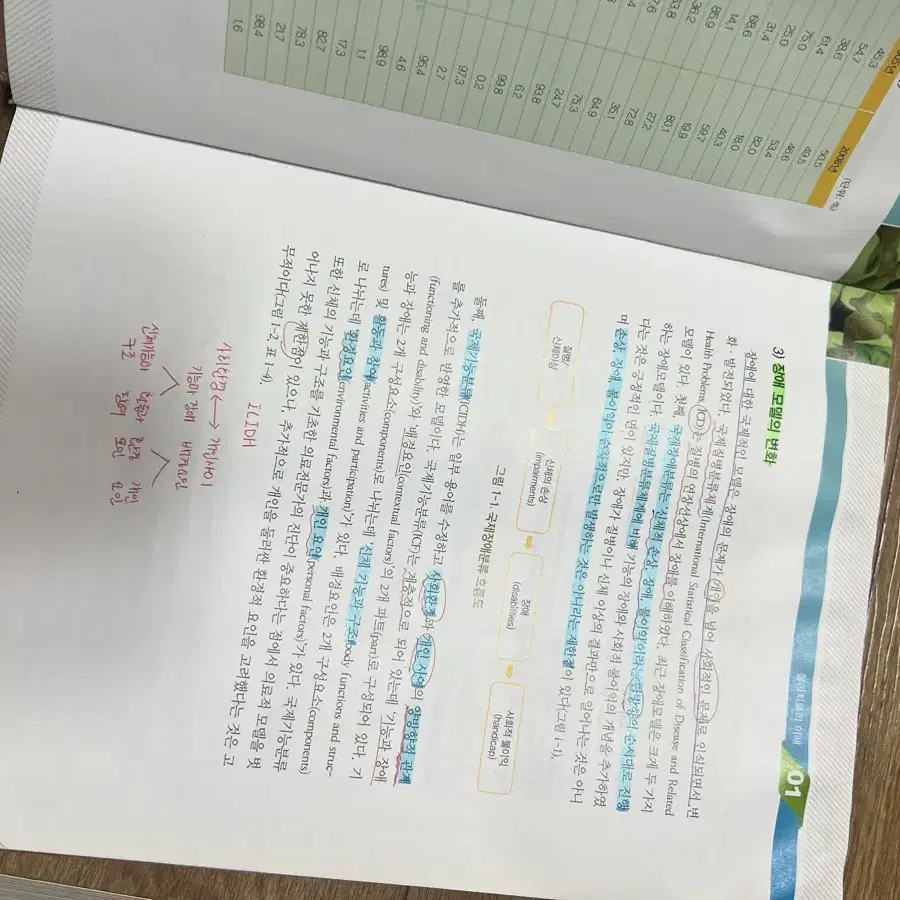 (단위: %)
2005년 2008년
45.3 50.5
54.7 49.5
38.6 46.6
61.4 53.4
75.0 82.0
25.0 18.0
31.4 40.3
68.6 59.7
14.1 19.9
85.9 80.1
36.2 27.2
72.8
35.1
64.9
75.3
24.7
93.8
6.2
99.8
0.2
97.3
2.7
95.4
4.6
98.9
1.1
17.3
82.7
78.3
21.7
98.4
1.6
물리치료의 이해 01
3) 장애 모델의 변화
장애에 대한 국제적인 모델은 장애의 문제가 개인을 넘어 사회적인 문제로 인식되면서 변
화·발전되었다. 국제질병분류체계(International Statistical Classification of Disease and Related
Health Problems, ICD)는 질병의 연장선상에서 장애를 이해하였다. 최근 장애모델은 크게 두 가지
모델이 있다. 첫째, 국제장애분류는 신체적 손상, 장애, 불이익이라는 일방향의 순서대로 진행
하는 장애모델이다. 국제질병분류체계에 비해 기능의 장애와 사회적 불이익의 개념을 추가하였
다는 것은 긍정적인 면이 있지만, 장애가 질병이나 신체 이상의 결과만으로 일어나는 것은 아니
며 손상, 장애, 불이익이 순차적으로만 발생하는 것은 아니라는 제한점이 있다(그림 1-1).
질병/
신체이상
신체의 손상
(impairments)
장애
(disabilities)
사회적 불이익
(handicap)
그림 1-1. 국제장애분류 흐름도
둘째, 국제기능분류(ICIDH)는 일부 용어를 수정하고 사회환경과 개인 사이의 양방향적 관계
를 추가적으로 반영한 모델이다. 국제기능분류(ICF)는 계층적으로 되어 있는데 '기능과 장애
(functioning and disability)'와 '배경요인(contextual factors)'의 2개 파트(part)로 구성되어 있다. 기
능과 장애는 2개 구성요소(components)로 나뉘는데 '신체 기능과 구조(body functions and struc-
tures) 및 활동과 참여(activities and participation)'가 있다. 배경요인은 2개 구성요소(components)
로 나뉘는데 '환경요인(environmental factors)과 개인 요인(personal factors)'가 있다. 국제기능분류
또한 신체의 기능과 구조를 기초한 의료전문가의 진단이 중요하다는 점에서 의료적 모델을 벗
어나지 못한 제한점이 있으나, 추가적으로 개인을 둘러싼 환경적 요인을 고려했다는 것은 고
무적이다(그림 1-2, 표 1-4).
ICIDH
사회환경 ↔ 개인사이
기능과 장애 배경요인
신체기능과 활동과 환경 개인
구조 참여 요인 요인